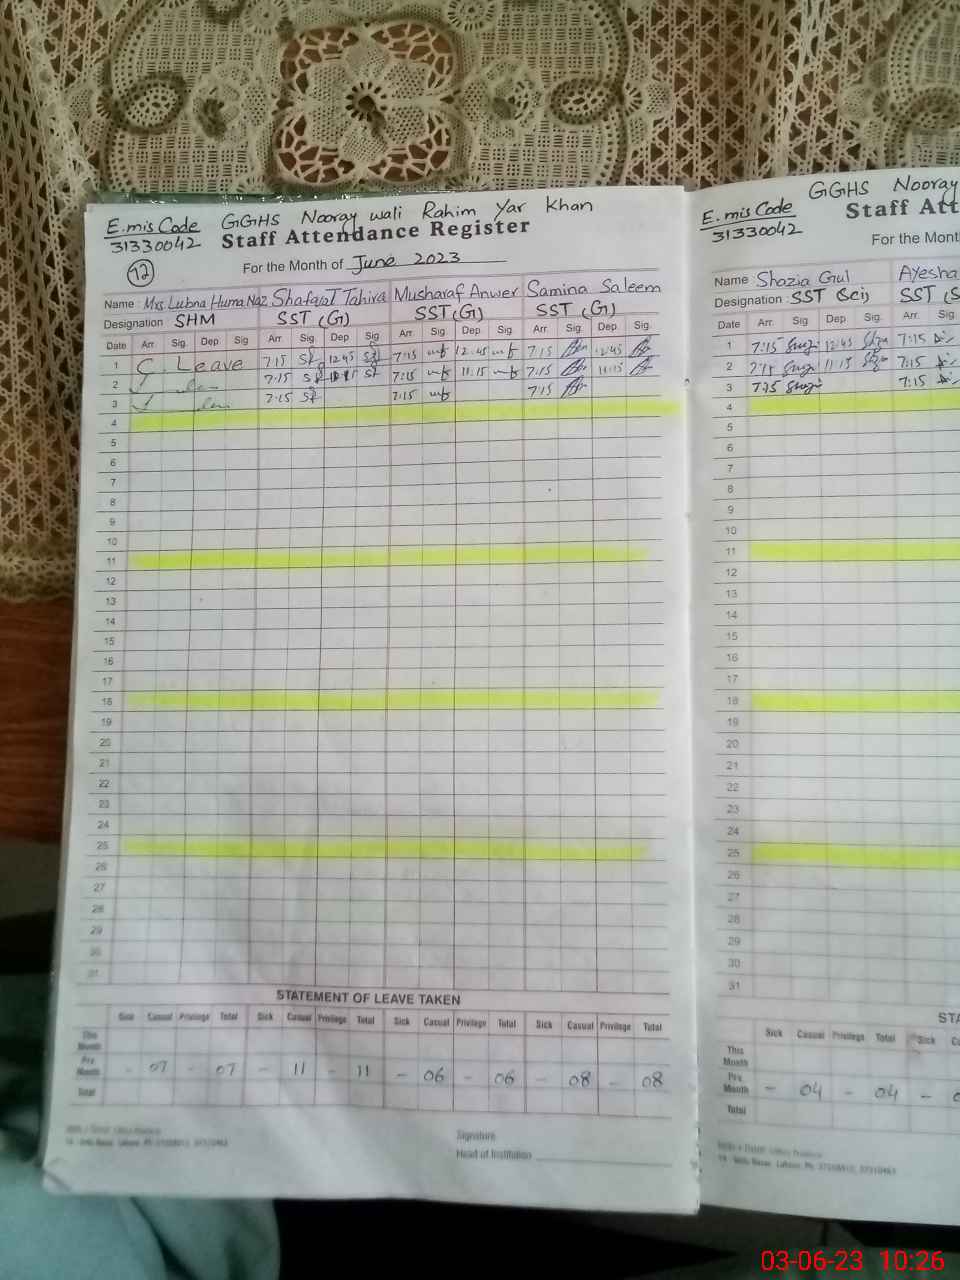 E.mis Code GGHS Nooray wali Rahim Yar Khan
31330042 Staff Attendance Register
12 For the Month of June 2023
Name : Mrs. Lubna Huma Naz Shafqat Tahira Musharaf Anwer Samina Saleem
Designation SHM SST (G) SST (G) SST (G)
Date Arr. Sig. Dep Sig Arr. Sig. Dep Sig. Arr. Sig Dep Sig. Arr. Sig. Dep Sig.
1 C. Leave 7:15 12:45 7:15 12:45 7:15 12:45
2 7:15 11:15 7:15 11:15 7:15 11:15
3 7:15 7:15 7:15
4
5
6
7
8
9
10
11
12
13
14
15
16
17
18
19
20
21
22
23
24
25
26
27
28
29
30
31
STATEMENT OF LEAVE TAKEN
Sick Casual Privilege Total Sick Casual Privilege Total Sick Casual Privilege Total Sick Casual Privilege Total
This Month
Pre Month - 07 - 07 - 11 - 11 - 06 - 06 - 08 - 08
Total
Signature
Head of Institution
E.mis Code GGHS Nooray
31330042 Staff Att
For the Mont
Name Shazia Gul Ayesha
Designation : SST (Sci) SST (S
Date Arr. Sig Dep Sig. Arr. Sig.
1 7:15 12:45 7:15
2 7:15 11:15 7:15
3 7:15 7:15
4
5
6
7
8
9
10
11
12
13
14
15
16
17
18
19
20
21
22
23
24
25
26
27
28
29
30
31
STA
Sick Casual Privilege Total Sick
This Month
Pre Month - 04 - 04 -
Total
03-06-23 10:26